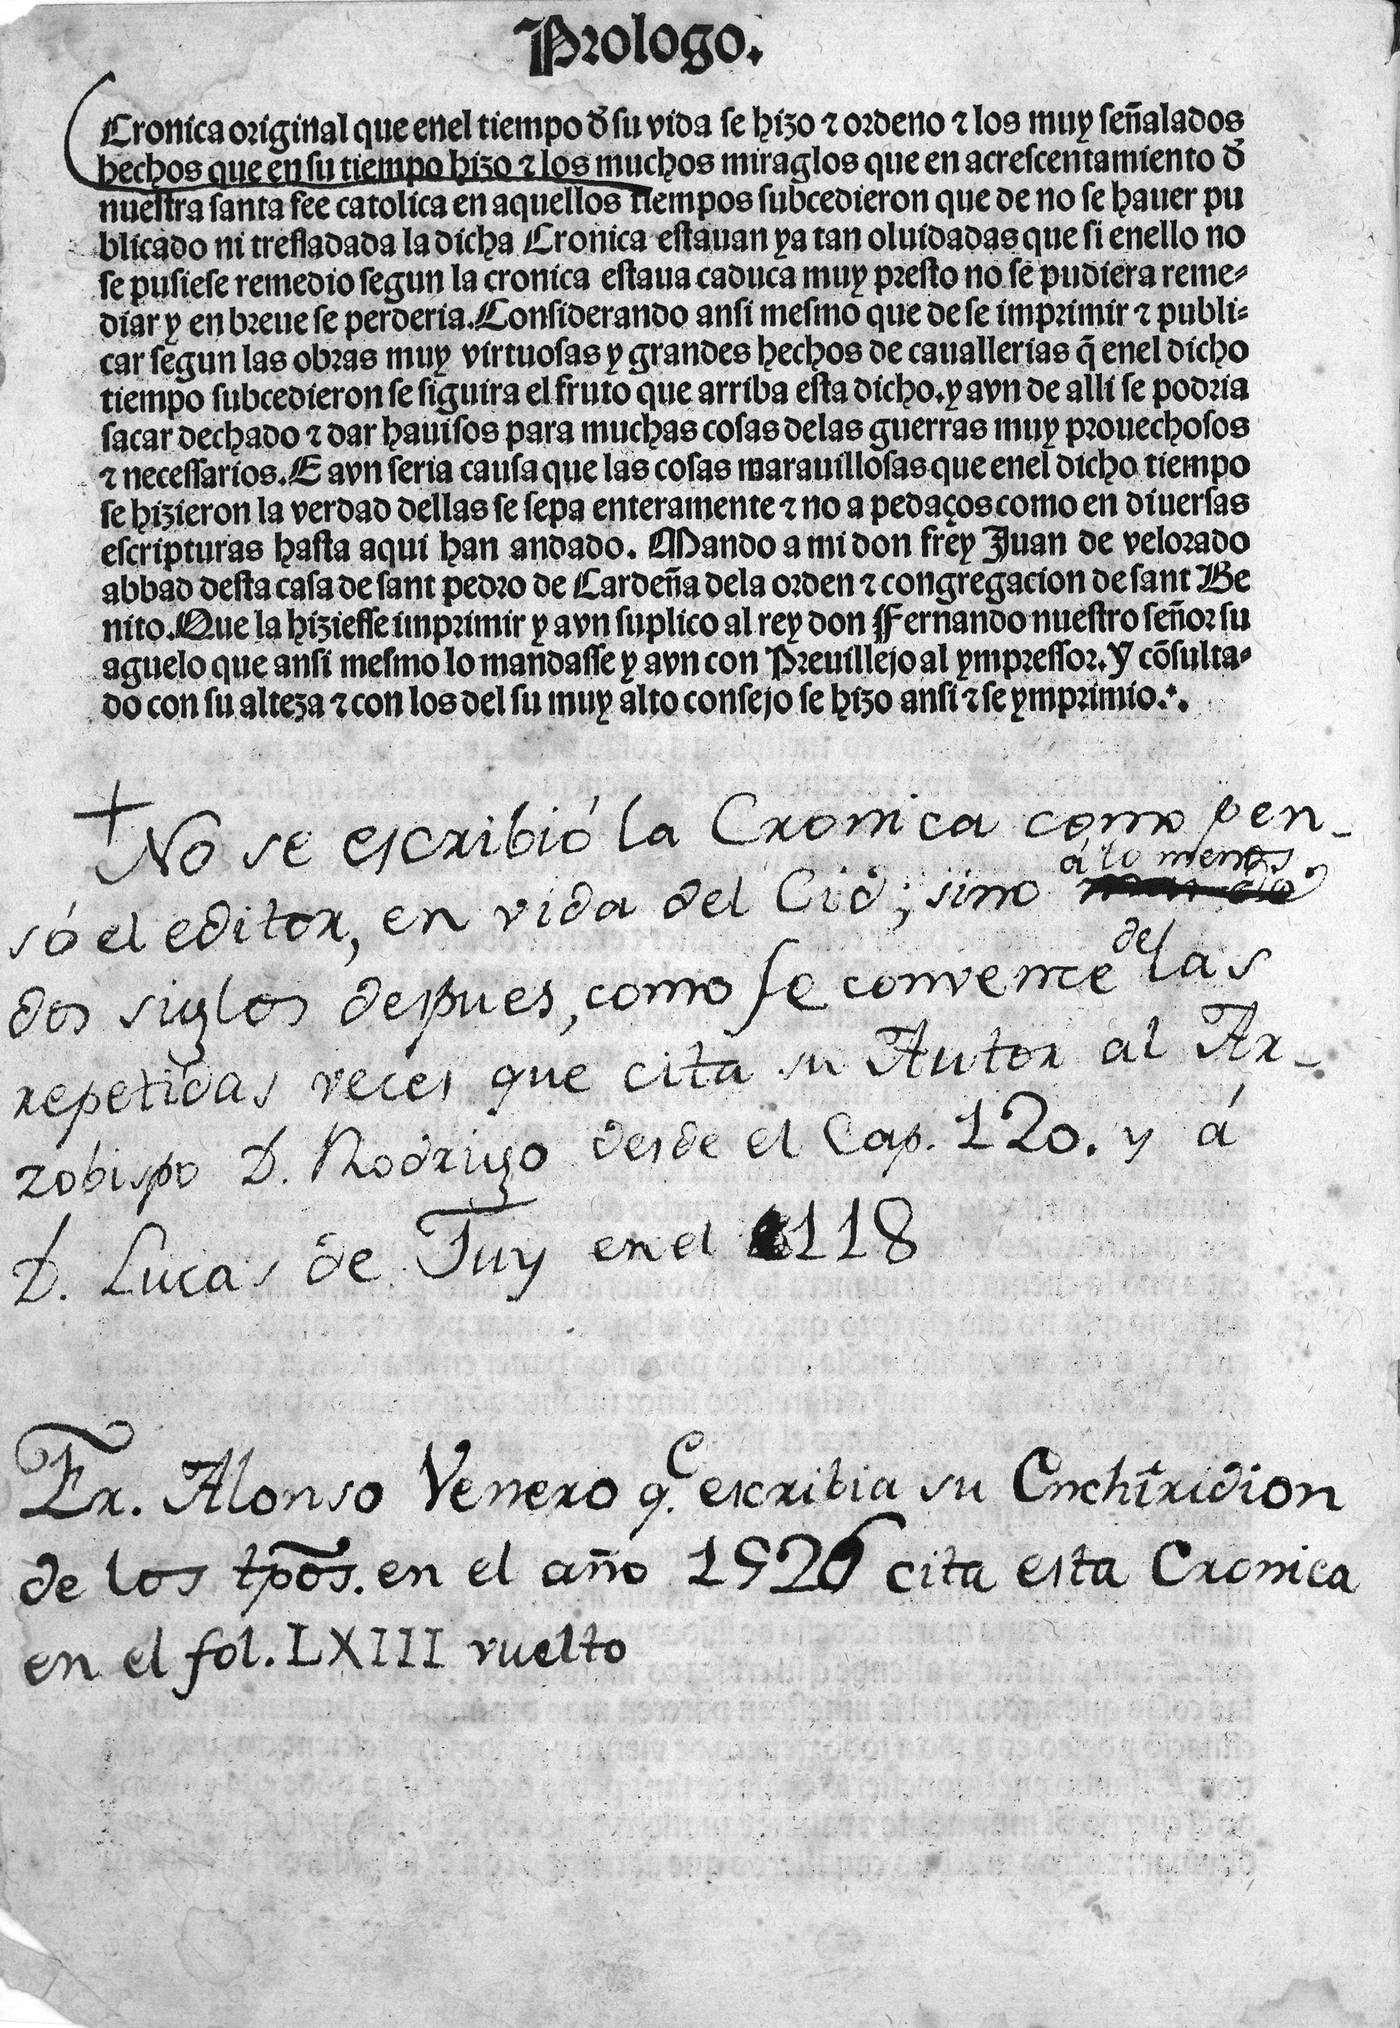 Prologo.
Cronica original que enel tiempo d̃ su vida se hizo ⁊ ordeno ⁊ los muy señalados
hechos que en su tiempo hizo ⁊ los muchos miraglos que en acrescentamiento d̃
nuestra santa fee catolica en aquellos tiempos subcedieron que de no se hauer pu
blicado ni trefladada la dicha Cronica estauan ya tan oluidadas que si enello no
se pusiese remedio segun la cronica estaua caduca muy presto no se pudiera reme-
diar y en breue se perderia. Considerando ansi mesmo que de se imprimir ⁊ publi-
car segun las obras muy virtuosas y grandes hechos de cauallerias q̃ enel dicho
tiempo subcedieron se siguira el fruto que arriba esta dicho. y avn de alli se podria
sacar dechado ⁊ dar hauisos para muchas cosas delas guerras muy prouechosos
⁊ necessarios. E avn seria causa que las cosas marauillosas que enel dicho tiempo
se hizieron la verdad dellas se sepa enteramente ⁊ no a pedaços como en diuersas
escripturas hasta aqui han andado. Mando a mi don frey Juan de velorado
abbad desta casa de sant pedro de Cardeña dela orden ⁊ congregacion de sant Be
nito. Que la hiziesse imprimir y avn suplico al rey don Fernando nuestro señor su
aguelo que ansi mesmo lo mandasse y avn con Preuillejo al ympressor. Y cõsulta-
do con su alteza ⁊ con los del su muy alto consejo se hizo ansi ⁊ se ymprimio.
+ No se escribió la Cronica como pen-
só el editor, en vida del Cid; sino á lo menos
dos siglos despues, como se convence de las
repetidas veces que cita su Autor al Ar-
zobispo D. Rodrigo desde el Cap. 120. y á
D. Lucas de Tuy en el 118
Fr. Alonso Venero q.e escribia su Enchiridion
de los tpõs. en el año 1526 cita esta Cronica
en el fol. LXIII vuelto